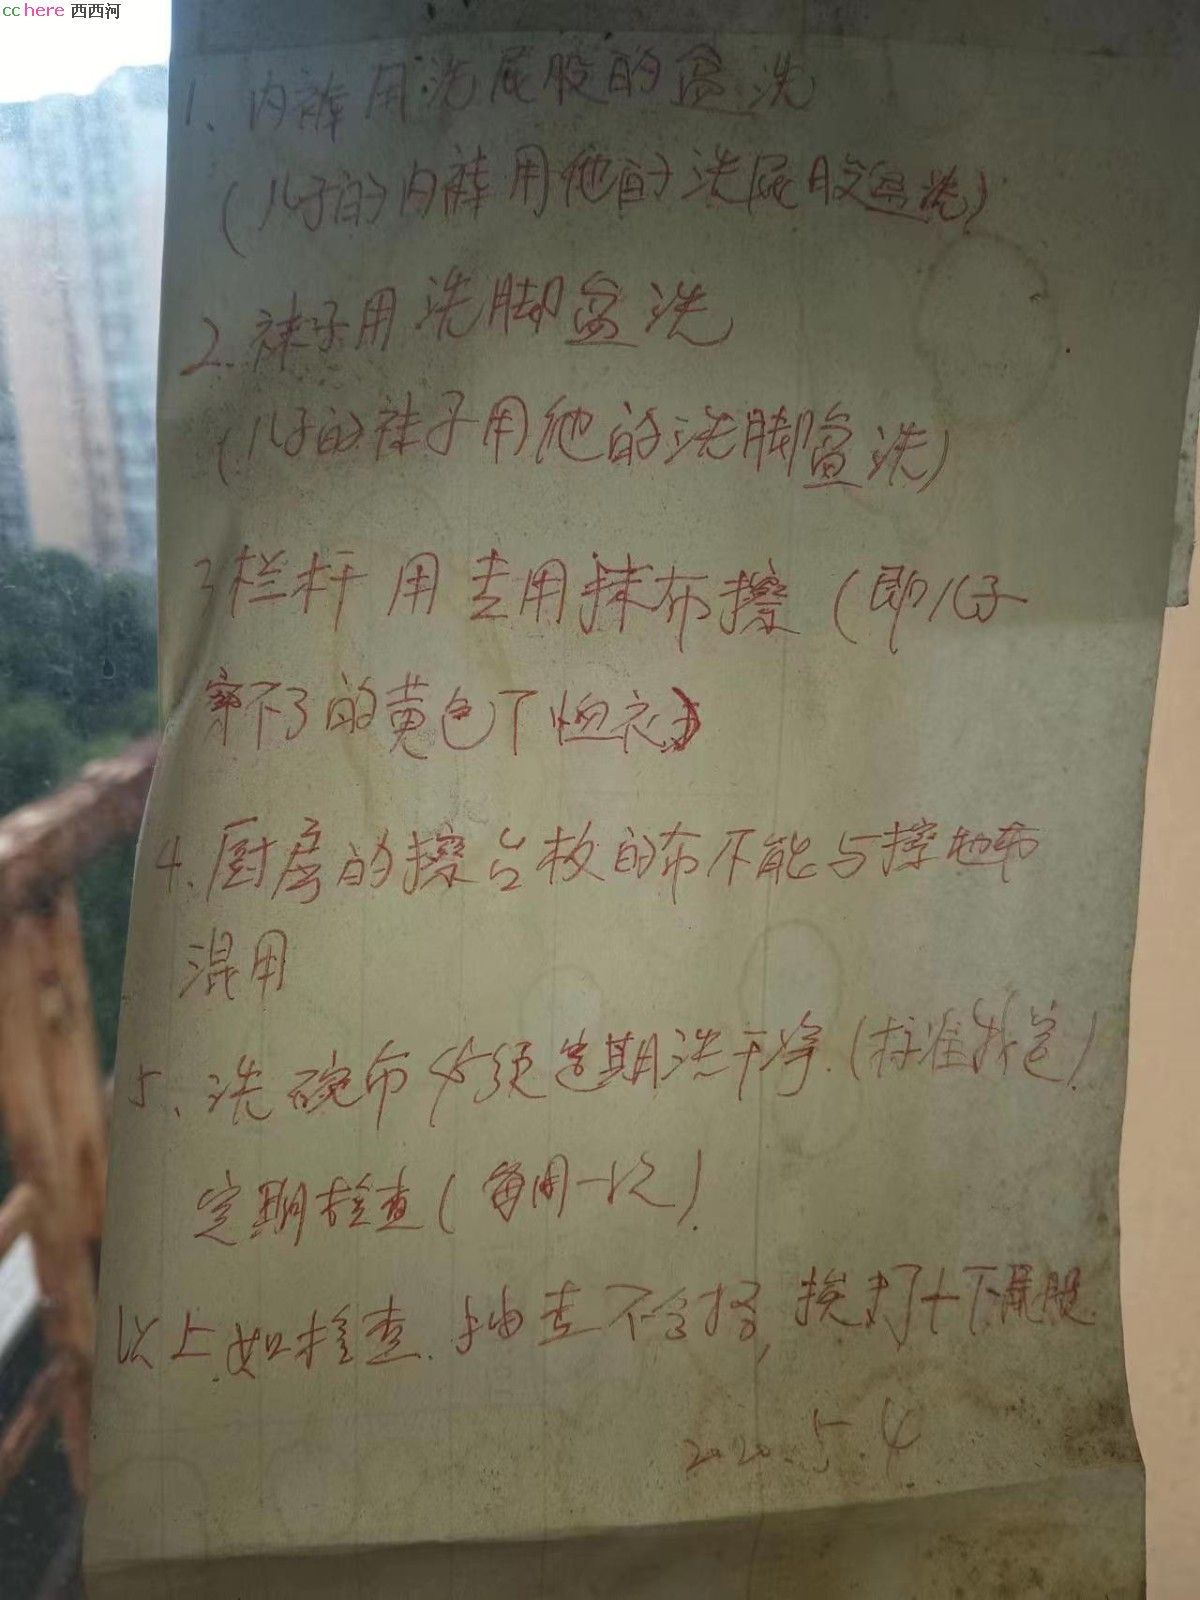 cchere 西西河
1、内裤用洗屁股的盆洗
(儿子的内裤用他的洗屁股盆洗)
2.袜子用洗脚盆洗
(儿子的袜子用他的洗脚盆洗)
3栏杆用专用抹布擦(即儿子
穿不了的黄色T恤衣)
4.厨房的擦台板的布不能与擦地布
混用
5、洗碗布必须定期洗干净.(标准抹)
定期检查(每周一次).
以上如检查.抽查不合格,挨打十下屁股.
2020.5.4